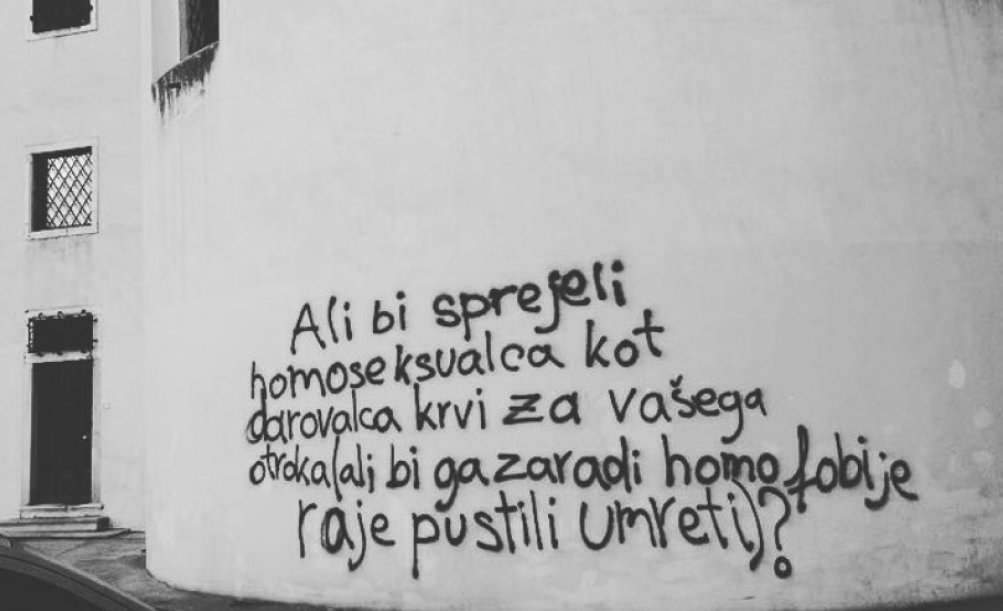 Ali bi sprejeli
homoseksualca kot
darovalca krvi za vašega
otroka(ali bi ga zaradi homofobije
raje pustili umreti)?